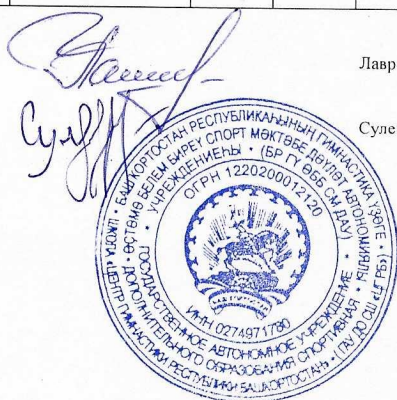 Лавр
Суле
БАШКОРТОСТАН РЕСПУБЛИКАҺЫНЫҢ ГИМНАСТИКА ҮҘӘГЕ
ӨҪТӘМӘ БЕЛЕМ БИРЕҮ СПОРТ МӘКТӘБЕ ДӘҮЛӘТ АВТОНОМИЯЛЫ
УЧРЕЖДЕНИЕҺЫ • (БР ГҮ ӨББ СМ ДАУ)
ОГРН 1220200012120
ИНН 0274971780
ГОСУДАРСТВЕННОЕ АВТОНОМНОЕ УЧРЕЖДЕНИЕ
ДОПОЛНИТЕЛЬНОГО ОБРАЗОВАНИЯ СПОРТИВНАЯ
ШКОЛА «ЦЕНТР ГИМНАСТИКИ РЕСПУБЛИКИ БАШКОРТОСТАН» • (ГАУ ДО СШ «ЦГРБ»)